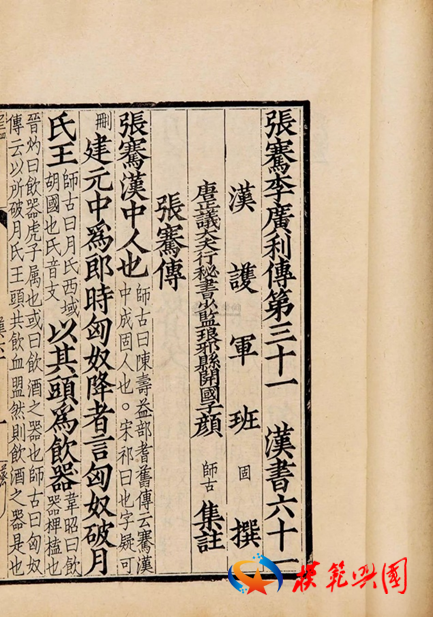 張騫李廣利傳第三十一　漢書六十一
漢護軍班固撰
唐正議大夫行秘書少監琅邪縣開國子顏師古集註
張騫傳
張騫漢中人也師古曰陳壽益部耆舊傳云騫漢中成固人也。宋祁曰也字疑可
刪建元中爲郎時匈奴降者言匈奴破月
氏王師古曰月氏西域胡國也氏音支以其頭爲飲器韋昭曰飲器椑榼也
晉灼曰飲器虎子属也或曰飲酒之器也師古曰匈奴
傳云以所破月氏王頭共飲血盟然則飲酒之器是也
模範興國